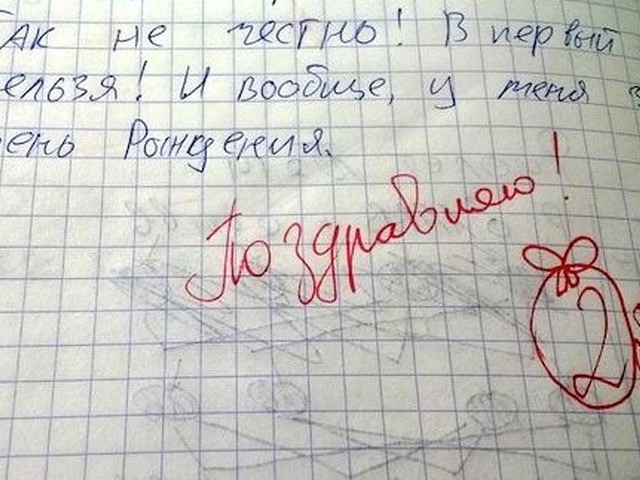 Так не честно! В первый
ельзя! И вообще, у меня
ень Рождения.
Поздравляю!
2